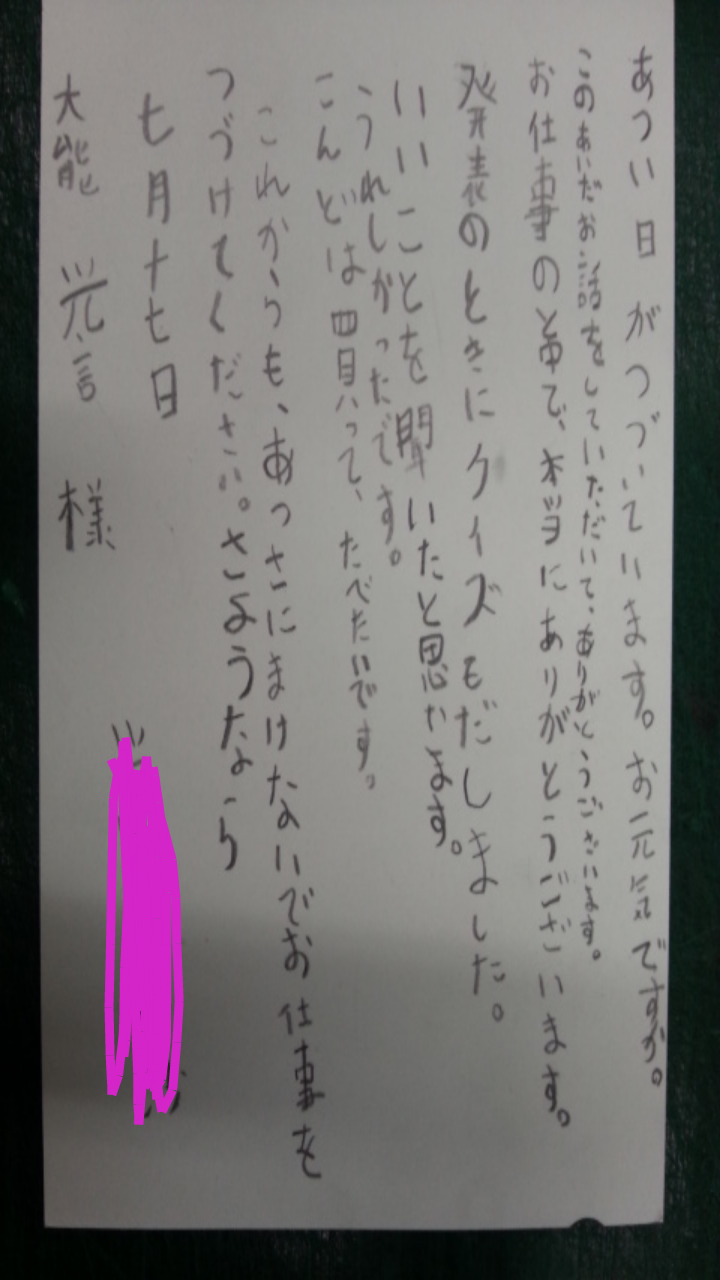 あつい日がつづいています。お元気ですか。
このあいだお話をしていただいて、ありがとうございます。
お仕事の中で、本当にありがとうございます。
発表のときにクイズもだしました。
いいことを聞いたと思います。
うれしかったです。
こんどは四買って、たべたいです。
これからも、あつさにまけないでお仕事を
つづけてください。さようなら
七月十七日
大能 様